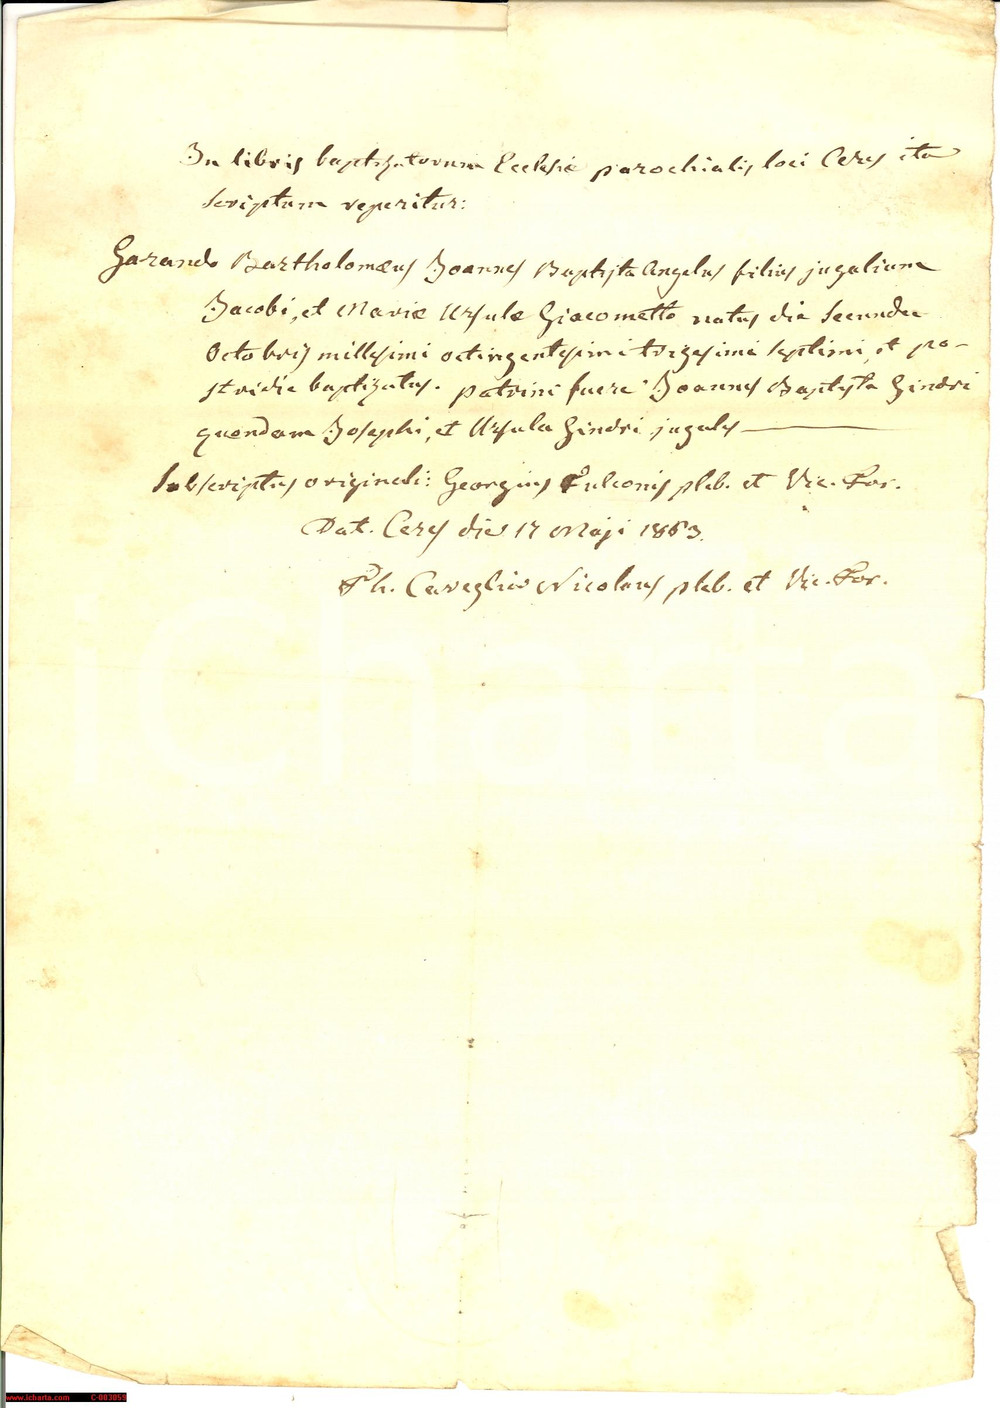 In libris baptizatorum Ecclesiæ parochialis loci Ceres ita
scriptum reperitur:
Garando Bartholomæus Joannes Baptista Angelus filius jugalium
Jacobi, et Mariæ Ursulæ Giacometto natus die secunda
Octobris millesimi octingentesimi trigesimi septimi, et po-
stridie baptizatus. patrini fuere Joannes Baptista Gindri
quondam Josephi, et Ursula Gindri jugales
Subscriptus originali: Georgius Fulconis pleb. et Vic. For.
Dat. Ceres die 17 Maji 1863.
Ph. Caveglia Nicolaus pleb. et Vic. For.
iCharta
www.icharta.com C-003059